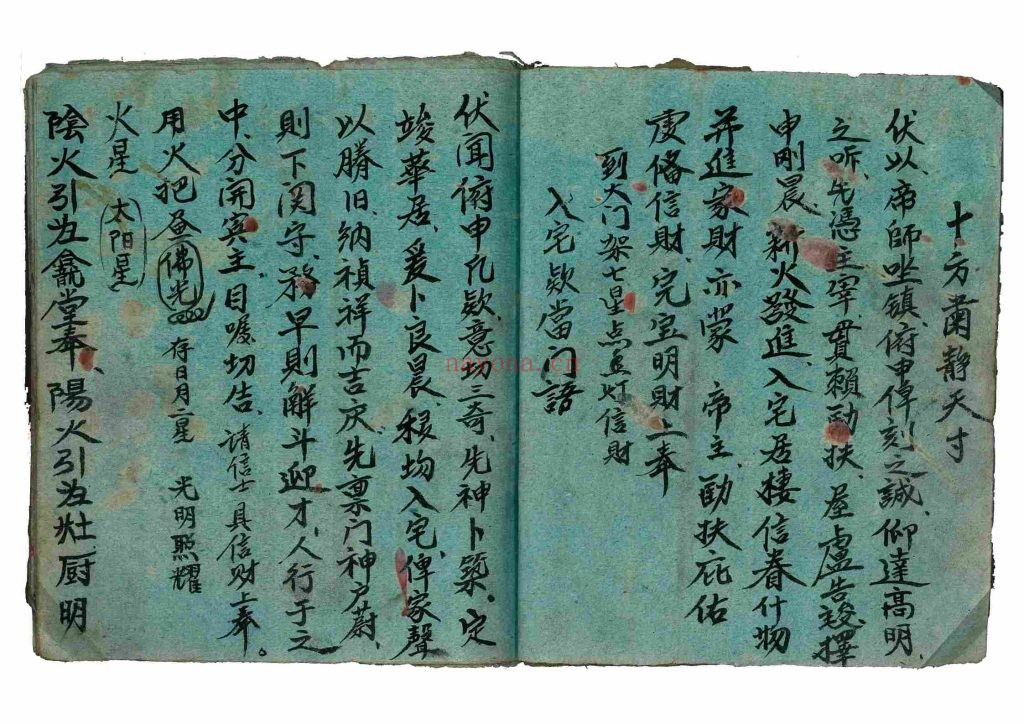 十方肅静天寸
伏以、帝師坐鎮、俯申俾刻之誠、仰達高明、
之听、先憑主宰、貫賴勐扶、屋盧告竣、擇
申剛晨、新火發進、入宅居棲信眷什物
并進家財亦蒙 帝主、勐扶庇佑
虔俻信財、完宝明財上奉
到大门架七星点孟灯信財
入宅欵當门語
伏聞俯申凡欵、意功三奇、先神卜築、定
竣華居、爰卜良晨、移均入宅、俾家聲
以勝旧、纳禎祥而吉庆、先禀门神户蔚、
則下関守、務早則解斗迎才、人行于之
中、分開賓主、目嘱、切告、請信士具信财上奉。
用火把 佛光 存日月二星 光明熙耀
火星 太阳星
陰火引为龕堂奉、陽火引为灶厨明
nayona.cn